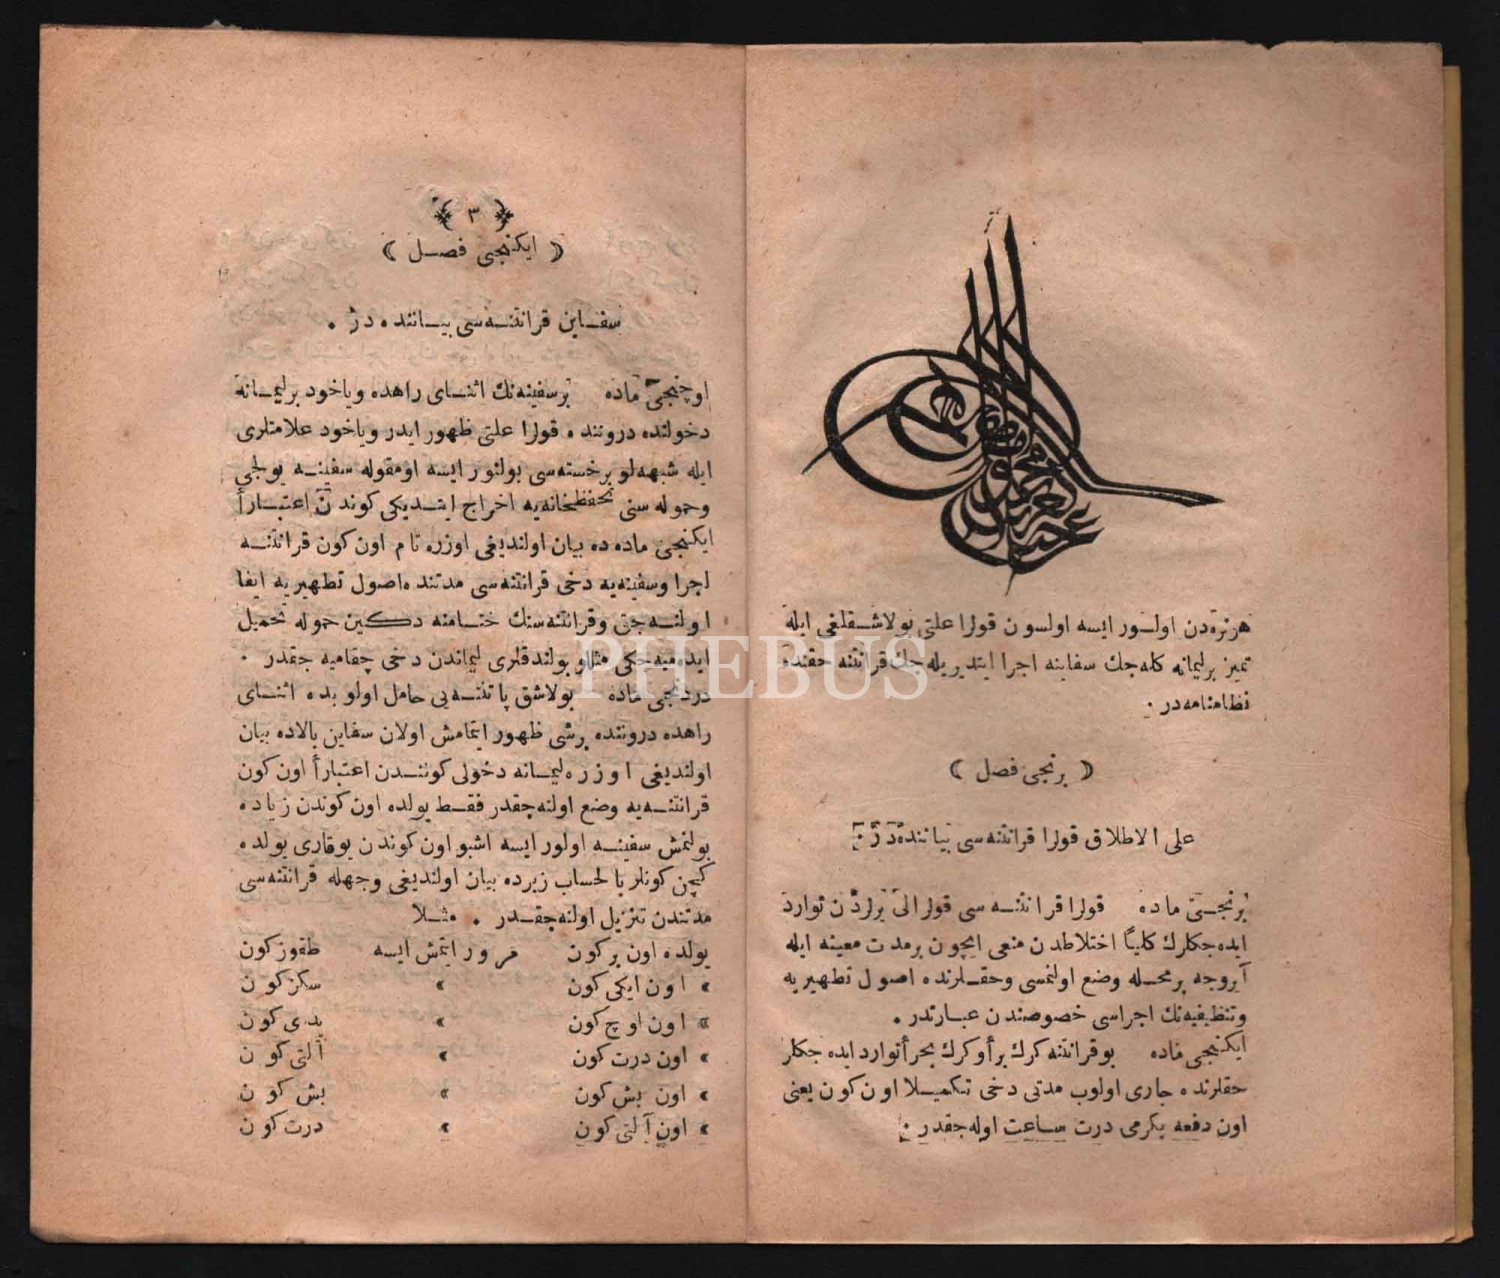 هرنره‌دن اولور ايسه اولسون قولرا علتی بولاشقلغی ايله
تميز برليمانه كله‌جك سفاينه اجرا ايتديريله‌جك قرانتنه حقنده
نظامنامه‌در .
( برنجی فصل )
علی الاطلاق قولرا قرانتنه‌سی بياننده‌در :
برنجی ماده قولرا قرانتنه‌سی قولرالی يرلردن توارد
ايده‌جكلرك كلياً اختلاطدن منعی ايچون برمدت معينه ايله
آيروجه برمحله وضع اولنمسی وحقلرنده اصول تطهيريه
وتنظيفيه‌نك اجراسی خصوصندن عبارتدر .
ايكنجی ماده بوقرانتنه كرك براً وكرك بحراً توارد ايده‌جكلر
حقلرنده جاری اولوب مدتی دخی تكميلا اون كون يعنی
اون دفعه يكرمی درت ساعت اوله‌جقدر :
٣
( ايكنجی فصل )
سفاين قرانتنه‌سی بياننده‌در .
اوچنجی ماده برسفينه‌نك اثنای راهده وياخود برليمانه
دخولنده دروننده قولرا علتی ظهور ايدر وياخود علامتلری
ايله شبهه‌لو برخسته‌سی بولنور ايسه اومقوله سفينه يولجی
وحموله سنی تحفظخانه‌يه اخراج ايتديكی كوندن اعتباراً
ايكنجی ماده‌ده بيان اولنديغی اوزره تام اون كون قرانتنه
اجرا وسفينه‌يه دخی قرانتنه‌سی مدتنده اصول تطهيريه ايفا
اولنه‌جق وقرانتنه‌سنك ختامنه دكين حموله تحميل
ايده‌ميه‌جكی مثللو بولندقلری ليماندن دخی چقاميه‌جقدر .
دردنجی ماده بولاشق پاتنته‌يی حامل اولوبده اثنای
راهده دروننده برشی ظهور ايتمامش اولان سفاين بالاده بيان
اولنديغی اوزره ليمانه دخولی كونندن اعتباراً اون كون
قرانتنه‌يه وضع اولنه‌جقدر فقط يولده اون كوندن زياده
بولنمش سفينه اولور ايسه اشبو اون كوندن يوقاری يولده
كچن كونلر بالحساب زيرده بيان اولنديغی وجهله قرانتنه‌سی
مدتندن تنزيل اولنه‌جقدر . مثلا
يولده اون بر كون مرور ايتمش ايسه طقوز كون
» اون ايكی كون » سكز كون
» اون اوچ كون » يدی كون
» اون درت كون » آلتی كون
» اون بش كون » بش كون
» اون آلتی كون » درت كون
PHEBUS